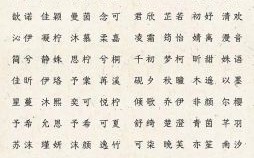 歆诺 佳颖 曼茵 念可 君欣 芷若 初妤 清欢
沁伊 凝柠 沐慕 柔嘉 凌霜 筠怡 婧离 漫音
简兮 静姝 思柠 凝冰 千帆 梦柯 昕甜 姝语
佳昕 伊珞 予棠 苒溪 砚夕 秋瞳 木遥 以墨
里蔓 沐熙 奕可 悦柠 倾歌 乔伊 非颜 尔樱
予希 允恩 予希 可夏 舒绮 楚澄 青茵 芊羽
苏沫 瑾妍 沐颜 逸竹 可棠 晚棠 亦笙 南汐